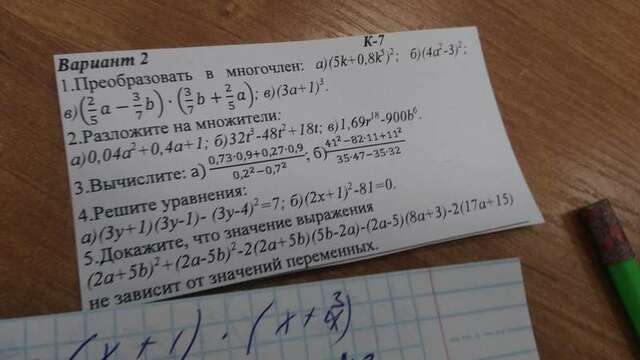 К-7
Вариант 2
1.Преобразовать в многочлен: а)(5k+0,8k⁵)²; б)(4a²-3)²;
в)(2/5 a − 3/7 b) · (3/7 b + 2/5 a); в)(3a+1)³.
2.Разложите на множители:
а)0,04a²+0,4a+1; б)32t³-48t²+18t; в)1,69r¹⁸-900b⁶.
3.Вычислите: а) (0,73·0,9+0,27·0,9)/(0,2²−0,7²); б) (41²−82·11+11²)/(35·47−35·32)
4.Решите уравнения:
а)(3y+1)(3y-1)- (3y-4)²=7; б)(2x+1)²-81=0.
5.Докажите, что значение выражения
(2a+5b)²+(2a-5b)²-2(2a+5b)(5b-2a)-(2a-5)(8a+3)-2(17a+15)
не зависит от значений переменных.
(x + 1) · (x + 3/x)